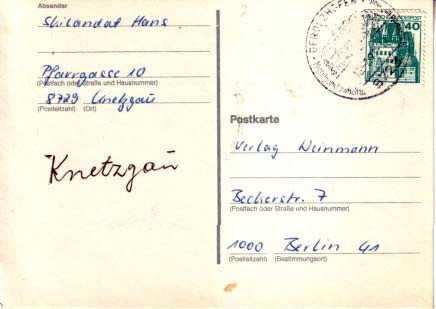 Absender
Skilandat Hans
Pfarrgasse 10
(Postfach oder Straße und Hausnummer)
8729 Knetzgau
(Postleitzahl) (Ort)
Knetzgau
GEROLZHOFEN
40
Postkarte
Verlag Weinmann
Beckerstr. 7
(Postfach oder Straße und Hausnummer)
1000 Berlin 41
(Postleitzahl) (Bestimmungsort)